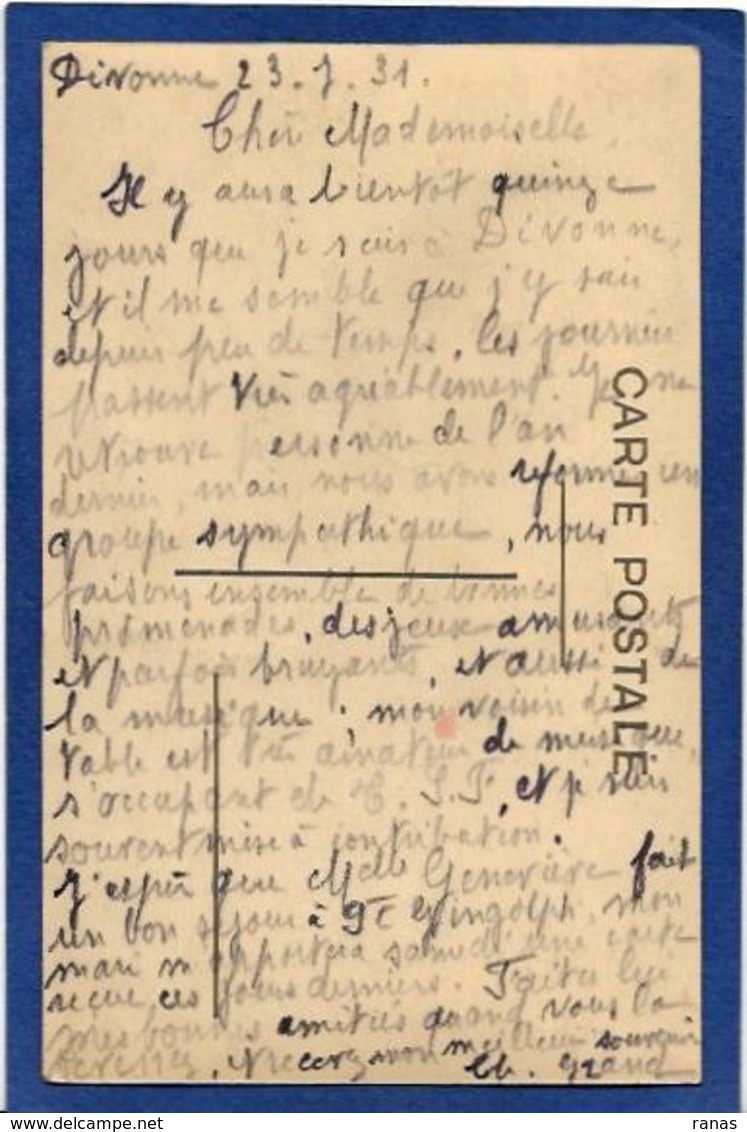 Divonne 23.7.31.
Chère Mademoiselle,
Il y aura bientôt quinze
jours que je suis à Divonne,
et il me semble que j'y suis
depuis peu de temps, les journées
passent très agréablement. Je ne
retrouve personne de l'an
dernier, mais nous avons reformé un
groupe sympathique, nous
faisons ensemble de bonnes
promenades, des jeux amusants
et parfois bruyants, et aussi de
la musique ; mon voisin de
table est très amateur de musique,
s'occupant de T.S.F, et je suis
souvent mise à contribution.
J'espère que Melle Geneviève fait
un bon séjour à St Gingolph, mon
mari m'apportera samedi une carte
reçue ces jours derniers. Faites lui
mes bonnes amitiés quand vous la
verrez. Recevez mon meilleur souvenir
Ch. Grand
CARTE POSTALE
ranas